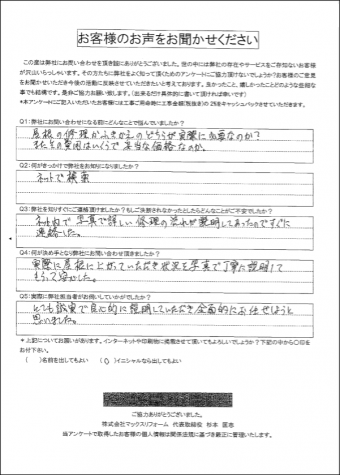 お客様のお声をお聞かせください
この度は弊社にお問い合わせを頂き誠にありがとうございました。世の中には弊社の存在やサービスをご存知ないお客様
が沢山いらっしゃいます。その方たちに弊社をよく知って頂くためのアンケートにご協力頂けないでしょうか？お客様のご意見
をお聞かせいただき今後の活動に反映させていただきたいと考えております。良かったこと、嬉しかったことどのような些細な
事でも結構です。是非ご協力お願い致します。（出来るだけ具体的に書いて頂ければ幸いです）
*本アンケートにご記入いただいたお客様には工事ご用命時に工事金額(税抜き)の2%をキャッシュバックさせていただきます。
Q1：弊社にお問い合わせになる前にどんなことで悩んでいましたか？
屋根の修理かふきかえのどちらが実際に必要なのか?
又その費用はいくらで妥当な価格なのか。
Q2：何がきっかけで弊社をお知りになりましたか？
ネットで検索
Q3：弊社を知りすぐにご連絡頂けましたか？もしご決断されなかったとしたらどんなことがご不安でしたか？
ネット内で写真で詳しい修理の流れが説明してあったのですぐに
連絡した。
Q4：何が決め手となり弊社にお問い合わせ頂きましたか？
実際に屋根に上がっていただき状況を写真で丁寧に説明して
もらって安心した。
Q5：実際に弊社担当者がお伺いしていかがでしたか？
とても誠実で良心的に説明していただき全面的にお任せしようと
思いました。
*上記についてお願いがあります。インターネットや印刷物に掲載させて頂いてもよろしいでしょうか？下記の中から〇印を
お付下さい。
（　）名前を出してもよい　（〇）イニシャルなら出してもよい
ご協力ありがとうございました。
株式会社マックスリフォーム　代表取締役　杉本　匡志
当アンケートで取得したお客様の個人情報は関係法規に基づき厳正に管理いたします。